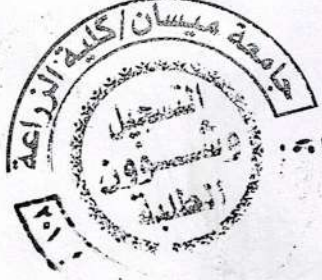 جامعة ميسان/كلية الزراعة
التسجيل
وشؤون
الطلبة